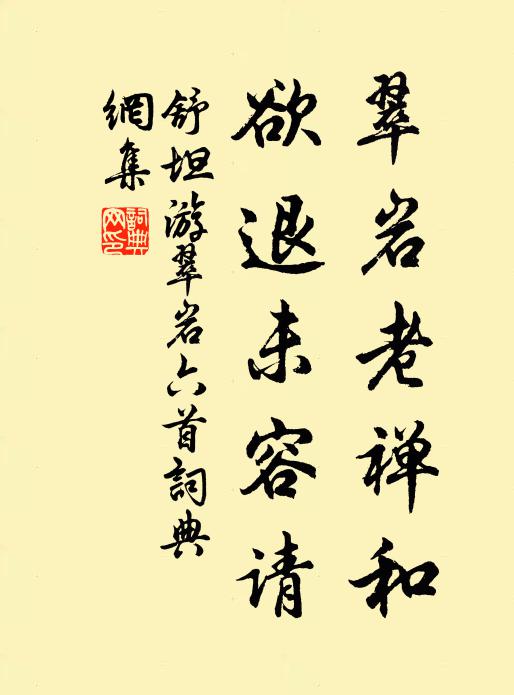 翠岩老禅和
欲退未容请
舒坦游翠岩六首詞典
網集
詞典
网印